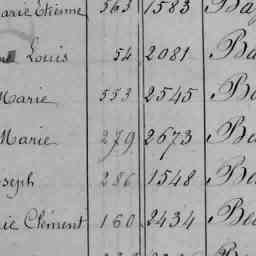 arie Etienne 563 1583 Ba
Louis 54 2081 Ba
Marie 553 2545 Ba
Marie 279 2673 Ba
oseph 286 1548 Be
ie Clément 160 2434 Be